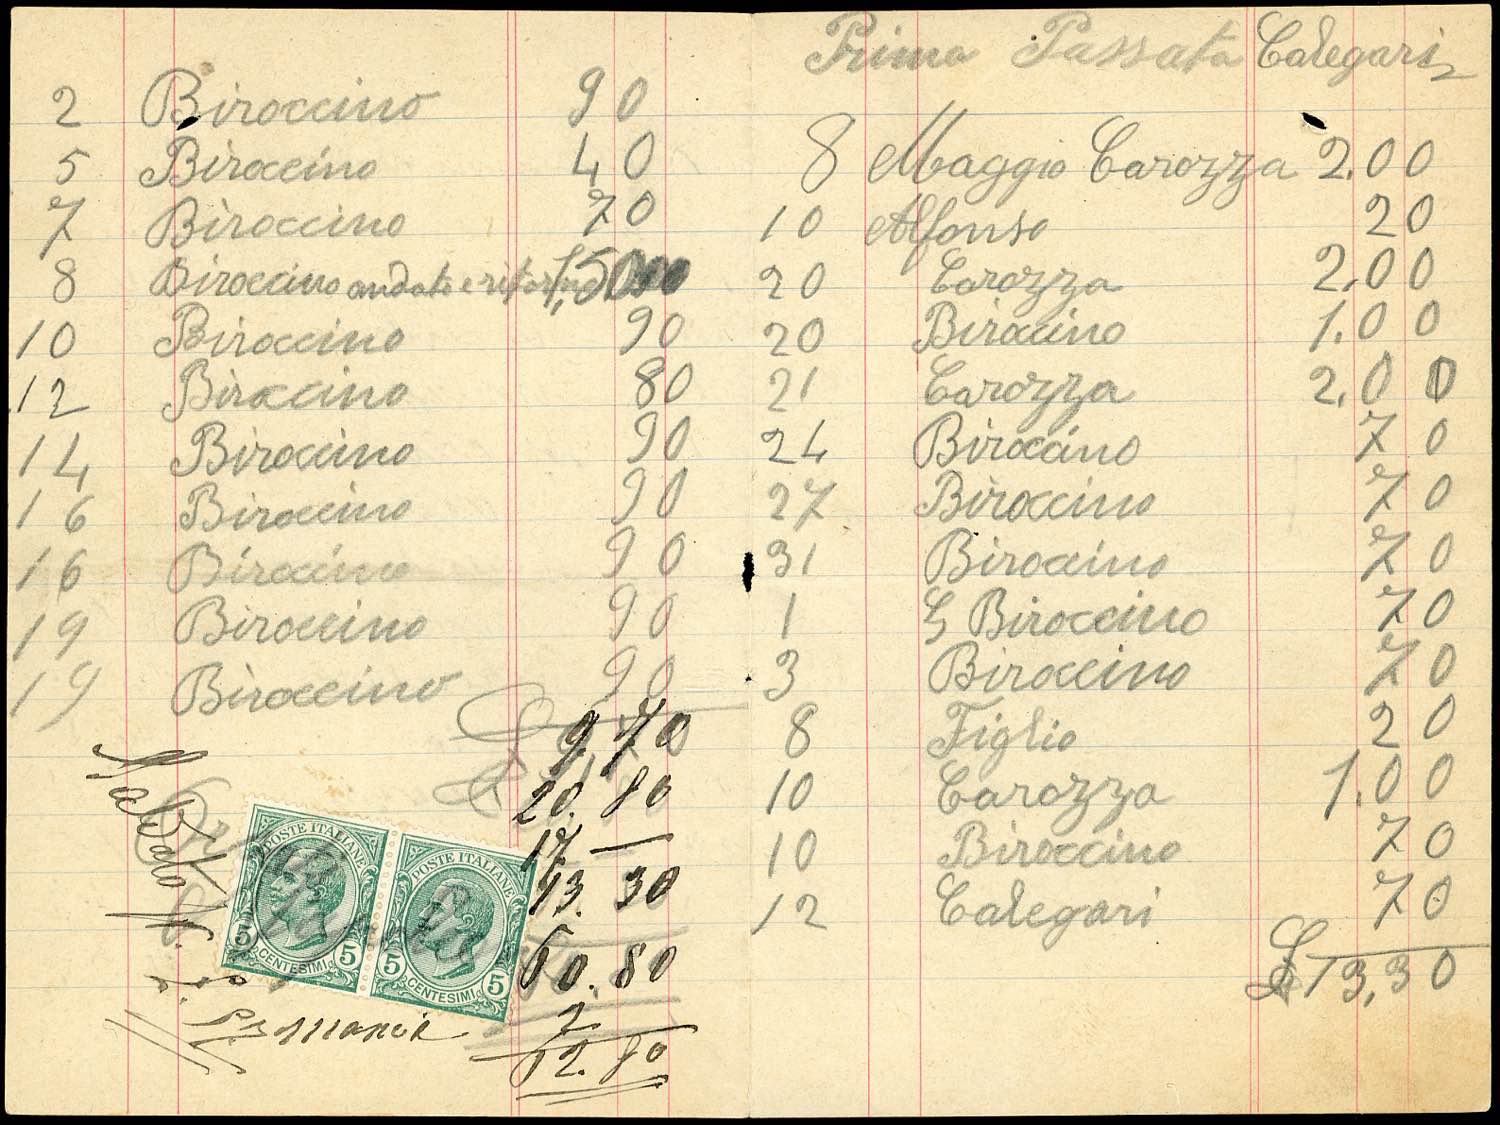 2 Biroccino 90
5 Biroccino 40
7 Biroccino 70
8 Biroccino andata e ritorno 1,50
10 Biroccino 90
12 Biroccino 80
14 Biroccino 90
16 Biroccino 90
16 Biroccino 90
19 Biroccino 90
19 Biroccino 90
£ 9,70
20.80
17 —
13.30
60.80
2
62.80
Saldato
POSTE ITALIANE
5 CENTESIMI 5
POSTE ITALIANE
5 CENTESIMI 5
Prima Passata Calegari
8 Maggio Carozza 2.00
10 Alfonso 20
20 Carozza 2.00
20 Biroccino 1.00
21 Carozza 2.00
24 Biroccino 70
27 Biroccino 70
31 Biroccino 70
1 G Biroccino 70
3 Biroccino 70
8 Figlio 20
10 Carozza 1.00
10 Biroccino 70
12 Calegari 70
£ 13,30